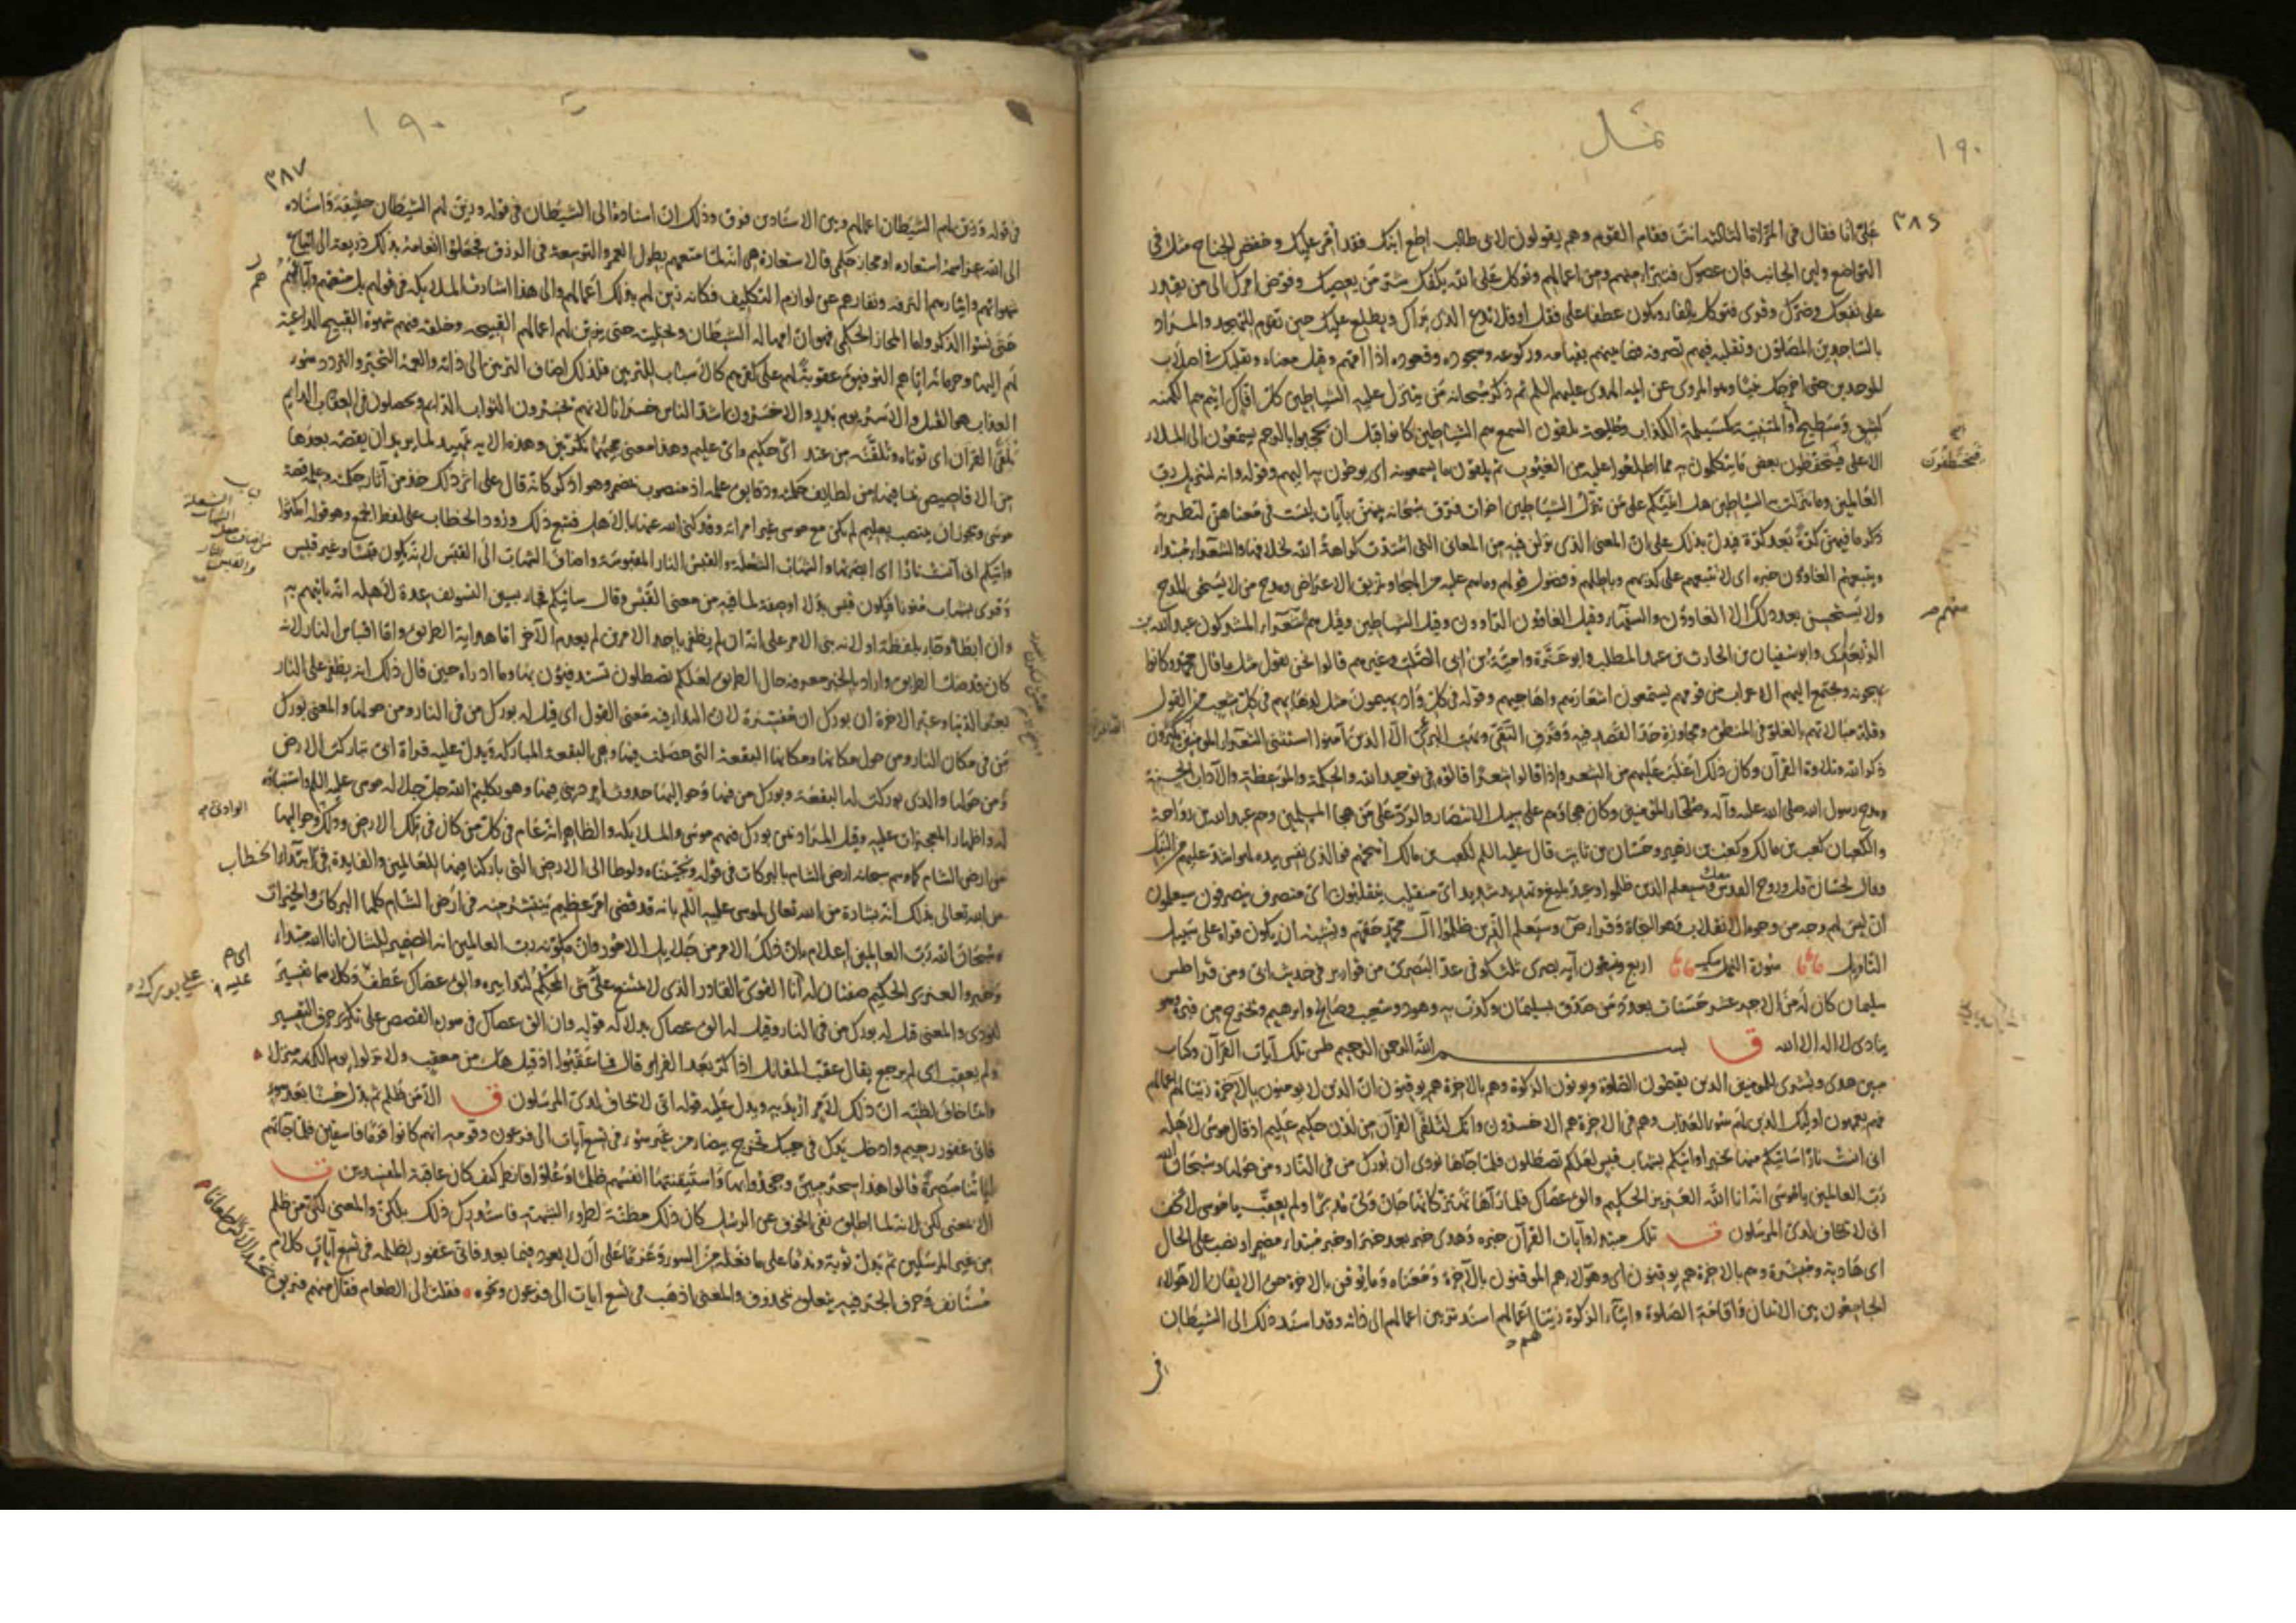 نمل
١٩٠
٣٨٦
علىّ انا فقال فى المرّة الثالثة انت فقام القوم وهم يقولون لابى طالب اطع ابنك فقد أمّر عليك وخفض الجناح مثل فى
التواضع ولين الجانب فان عصوك فتبرّا منهم ومن اعمالهم وتوكل على الله يكفك شرّ من يعصيك وفوّض امرك الى من يقدر
على نفعك وضرّك وقرى فتوكل بالفاء ويكون عطفا على فقل او فلا تدع الذى يراك ويطلع عليك حين تقوم للتهجد والمراد
بالساجدين المصلون وتقلبه فيهم تصرفه فيما بينهم بقيامه وركوعه وسجوده وقعوده اذا امّهم وقيل معناه وتقلبك فى اصلاب
الموحدين حتى اخرجك نبيّا وهو المروى عن ايمة الهدى عليهم السلم ثم ذكر سبحانه من يتنزل عليه الشياطين كل افّاك اثيم هم الكهنة
كشق وسطيح والمتنبية كمسيلمة الكذاب وطليحة يلقون السمع هم الشياطين كانوا قبل ان يحجبوا بالرجم يسمعون الى الملاء
الاعلى فيتحفظون بعض ما يتكلمون به مما اطلعوا عليه من الغيوب ثم يلقون ما يسمعونه اى يوحون به اليهم وقوله وانه لتنزيل ربّ
العالمين وما تنزلت به الشياطين هل انبّئكم على من تنزّل الشياطين اخوات فرّق سبحانه بينهنّ بآيات ليست فى معناهنّ لتطرية
ذكر ما فيهنّ كرّة بعد كرّة فيدلّ بذلك على انّ المعنى الذى نزلن فيه من المعانى التى اشتدت كراهة الله لخلافها والشعراء مبتداء
ويتبعهم الغاوون خبره اى لا يتبعهم على كذبهم وباطلهم وفضول قولهم وما هم عليه من الهجاء وتمزيق الاعراض ومدح من لا يستحق المدح
ولا يستحسن بعد ذلك الا الغاوون والسفهاء وقيل الغاوون الراوون وقيل الشياطين وقيل هم شعراء المشركون عبد الله بن
الزبعرى وابو سفيان بن الحارث بن عبد المطلب وابو عزّة وامية بن ابى الصلت وغيرهم قالوا نحن نقول مثل ما قال محمّد وكانوا
يهجونه ويجتمع اليهم الاعراب من قومهم يستمعون اشعارهم واهاجيهم وقوله فى كل واد يهيمون مثل لذهابهم فى كل شعب من القول
وقلة مبالاتهم بالغلوّ فى المنطق ومجاوزة حدّ القصد فيه الّا الذين آمنوا استثنى الشعراء المؤمنين
ذكر الله وتلاوة القرآن وكان ذلك اغلب عليهم من الشعر واذا قالوا شعرا قالوه فى توحيد الله والحكمة والموعظة والآداب الحسنة
ومدح رسول الله صلى الله عليه وآله وصلحاء المؤمنين وكان هجاؤهم على سبيل الانتصار والردّ على من هجا المسلمين وهم عبد الله بن رواحة
والكعبان كعب بن مالك وكعب بن زهير وحسّان بن ثابت قال عليه السلم لكعب بن مالك اهجهم فوالذى نفسى بيده لهو اشدّ عليهم من النبل
وقال لحسّان قل وروح القدس معك وسيعلم الذين ظلموا وعيد بليغ وتهديد شديد اىّ منقلب ينقلبون اىّ منصرف ينصرفون سيعلمون
ان ليس لهم وجه من وجوه الانفلات وهو النجاة وقراء ص وسيعلم الذين ظلموا آل محمّد حقّهم ويشبه ان يكون قراه على سبيل
التاويل سورة النمل مكية اربع وتسعون آية بصرى ثلث كوفى عدّ البصرى من قوارير فى حديث ابىّ ومن قراء طس
سليمان كان له من الاجر عشر حسنات بعدد من صدّق بسليمان وكذّب به وهود وشعيب وصالح وابرهيم ويخرج من قبره وهو
ينادى لا اله الا الله ق بسم الله الرحمن الرحيم طس تلك آيات القرآن وكتاب
مبين هدى وبشرى للمؤمنين الذين يقيمون الصلوة ويؤتون الزكوة وهم بالاخرة هم يوقنون انّ الذين لا يؤمنون بالآخرة زيّنّا لهم اعمالهم
فهم يعمهون اوليك الذين لهم سوء العذاب وهم فى الاخرة هم الاخسرون وانّك لتلقّى القرآن من لدن حكيم عليم اذ قال موسى لاهله
انى انست نارا سآتيكم منها بخبر او اتيكم بشهاب قبس لعلكم تصطلون فلمّا جآءها نودى ان بورك من فى النار ومن حولها وسبحان الله
ربّ العالمين يا موسى انّه انا الله العزيز الحكيم والق عصاك فلما رآها تهتزّ كانّها جانّ ولّى مدبرا ولم يعقّب يا موسى لا تخف
انى لا يخاف لدىّ المرسلون ت تلك مبتداء وآيات القرآن خبره وهدى خبر بعد خبر او خبر مبتداء مضمر او نصب على الحال
اى هادية ومبشرة وهم بالاخرة هم يوقنون اى وهؤلاء هم الموقنون بالآخرة ومعناه وما يوقن بالاخرة حق الايقان الا هؤلاء
الجامعون بين الايمان واقامة الصلوة وايتاء الزكوة زيّنّا لهم اعمالهم اسند تزيين اعمالهم الى ذاته وقد اسند ذلك الى الشيطان
١٩٠
٣٨٧
فى قوله وزيّن لهم الشيطان اعمالهم وبين الاسنادين فرق وذلك انّ اسناده الى الشيطان فى قوله وزين لهم الشيطان حقيقة واسناده
الى الله عزّ اسمه استعارة او مجاز حكمى فالاستعارة هى انه لمّا متعهم بطول العمر والتوسعة فى الرزق فجعلوا انعامه بذلك ذريعة الى اتباع
شهواتهم وايثارهم الترفه ونفارهم عن لوازم التكليف فكانه زين لهم بذلك اعمالهم والى هذا اشارت الملايكة فى قولهم بل متعتهم وآباءهم
حتى نسوا الذكر واما المجاز الحكمى فهو انّ امهاله الشيطان وتخليته حتى يزيّن لهم اعمالهم القبيحة وخلقه فيهم شهوة القبيح الداعية
لهم اليها وحرمانه ايّاهم التوفيق عقوبة لهم على كفرهم كالاسباب للتزيين فلذلك اضاف التزيين الى ذاته والعمه التحيّر والتردد سوء
العذاب هو القتل والاسر يوم بدر والاخسرون اشدّ الناس خسرانا لانهم يخسرون الثواب الدايم ويحصلون فى العقاب الدايم
لتلقّى القرآن اى تؤتاه وتلقّنه من عند اىّ حكيم واىّ عليم وهذا معنى مجيئهما نكرتين وهذه الآية تمهيد لما يريد ان يقصّه بعدها
من الاقاصيص لما فيها من لطايف حكمته ودقايق علمه اذ منصوب بمضمر وهو اذكر كانّه قال على اثر ذلك خذ من آثار حكمته وعلمه قصة
موسى ويجوز ان ينتصب بعليم لم يكن مع موسى غير امراته وقد كنى الله عنها بالاهل فتبع ذلك ورود الخطاب على لفظ الجمع وهو قوله امكثوا
واتيكم انى آنست نارا اى ابصرتها والشهاب الشعلة والقبس النار المقبوسة واضاف الشهاب الى القبس لانّه يكون قبسا وغير قبس
وقرى بشهاب منوّنا فيكون قبس بدلا او صفة لما فيه من معنى القبس وقال سآتيكم فجاء بسين التسويف عدة لاهله انّه ياتيهم به
وان ابطأ وجاء بلفظة او لانه بنى الامر على انّه ان لم يظفر باحد الامرين لم يعدم الآخر امّا هداية الطريق وامّا اقتباس النار لانه
كان قد ضلّ الطريق واراد بالخبر معرفة حال الطريق لعلكم تصطلون تستدفئون بها وما ادراه حين قال ذلك انه يظفر على النار
بعزّ الدنيا وعزّ الاخرة ان بورك ان مفسّرة لانّ النداء فيه معنى القول اى قيل له بورك من فى النار ومن حولها والمعنى بورك
من فى مكان النار ومن حول مكانها ومكانها البقعة التى حصلت فيها وهى البقعة المباركة ويدلّ عليه قراة ابىّ تباركت الارض
ومن حولها والذى بوركت له البقعة وبورك من فيها وحواليها حدوث امر دينىّ فيها وهو تكليم الله جلّ جلاله موسى عليه السلم واستنباؤه
له واظهار المعجزات عليه وقيل المراد بمن بورك فيهم موسى والملايكة والظاهر انّه عام فى كلّ من كان فى تلك الارض وذلك وحواليها
من ارض الشام كما وسم سبحانه ارض الشام بالبركات فى قوله ونجّيناه ولوطا الى الارض التى باركنا فيها للعالمين والفايدة فى ابتداء الخطاب
من الله تعالى بذلك انّه بشارة من الله تعالى لموسى عليه السلم بانه قد قضى امر عظيم ينتشر منه فى ارض الشام كلها البركات والخيرات
وسبحان الله ربّ العالمين اعلام بانّ ذلك الامر من جلايل الامور وانّ مكوّنه ربّ العالمين انه الضمير للشان انا الله مبتداء
وخبر والعزيز الحكيم صفتان له أنا القوى القادر الذى لا يمتنع علىّ شى المحكم لتدابيره والق عصاك عطف وكلاهما تفسير
لنودى والمعنى قيل له بورك من فى النار وقيل له الق عصاك بدلالة قوله وان الق عصاك فى سورة القصص على تكرير حرف التفسير
ولم يعقب اى لم يرجع يقال عقّب المقاتل اذا كرّ بعد الفرار قال فما عقّبوا اذ قيل هل من معقّب ولا نزلوا يوم الكريهة منزلا
وانما خاف لظنّه انّ ذلك لامر اريد به ويدل عليه قوله انى لا يخاف لدىّ المرسلون ق الّا من ظلم ثم بدّل حسنا بعد سوء
فانى غفور رحيم وادخل يدك فى جيبك تخرج بيضاء من غير سوء فى تسع آيات الى فرعون وقومه انهم كانوا قوما فاسقين فلمّا جاءتهم
آياتنا مبصرة قالوا هذا سحر مبين وجحدوا بها واستيقنتها انفسهم ظلما وعلوّا فانظر كيف كان عاقبة المفسدين ت
الّا بمعنى لكن لانه لما اطلق نفى الخوف عن الرسل كان ذلك مظنّة لطروء الشبهة فاستدرك ذلك بلكن والمعنى لكن من ظلم
من غير المرسلين ثم بدّل توبة وندما على ما فعله من السوء وعزما على ان لا يعود فيما بعد فانى غفور لظلمه فى تسع آيات كلام
مستانف وحرف الجر فيه يتعلق بمحذوف والمعنى اذهب فى تسع ايات الى فرعون ونحوه فقلت الى الطعام فقال منهم فريق